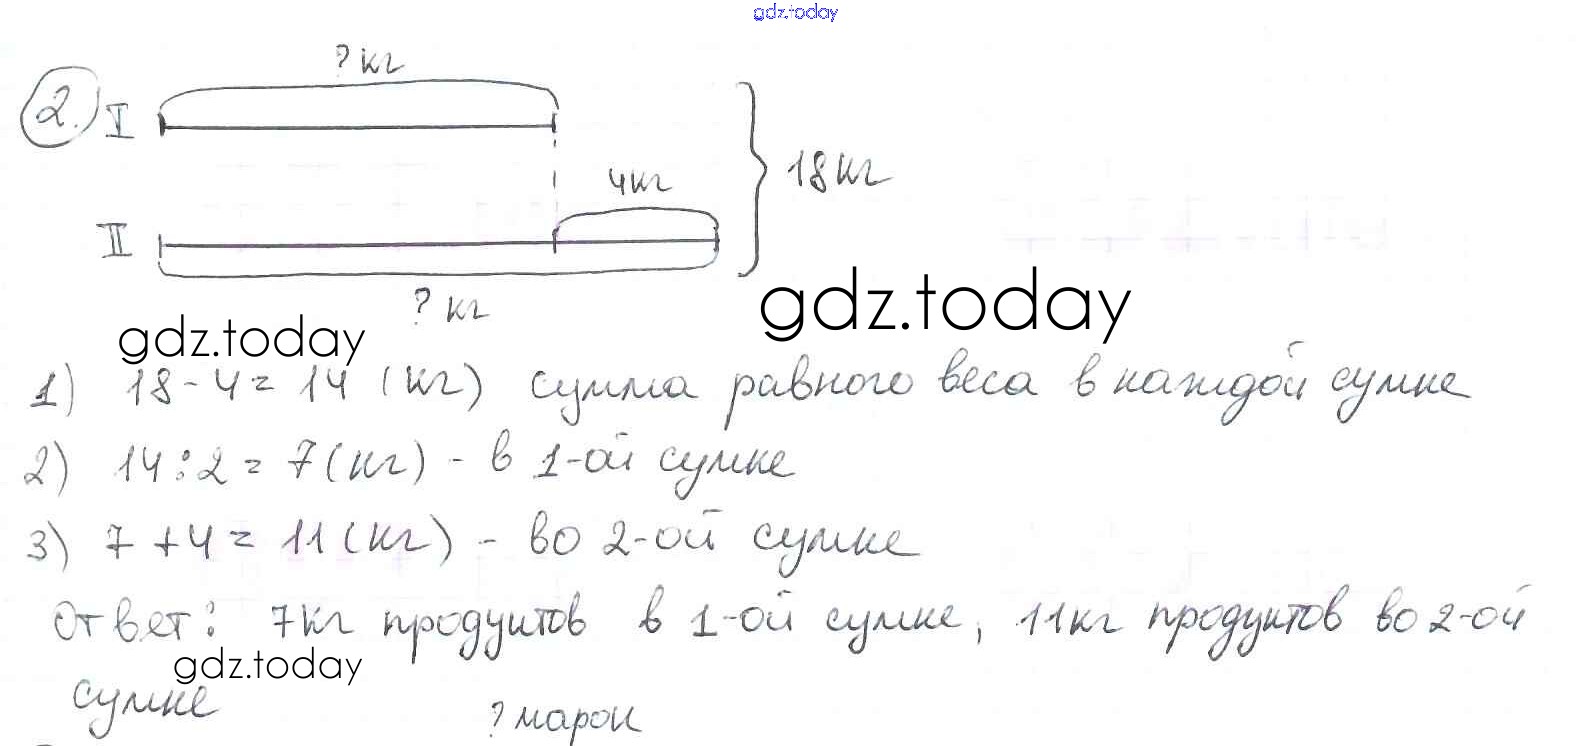 gdz.today
? кг
2. I
4кг
18кг
II
? кг
gdz.today
gdz.today
1) 18 - 4 = 14 (кг) сумма равного веса в каждой сумке
2) 14 : 2 = 7 (кг) - в 1-ой сумке
3) 7 + 4 = 11 (кг) - во 2-ой сумке
Ответ: 7кг продуктов в 1-ой сумке, 11кг продуктов во 2-ой
gdz.today
сумке
? марок